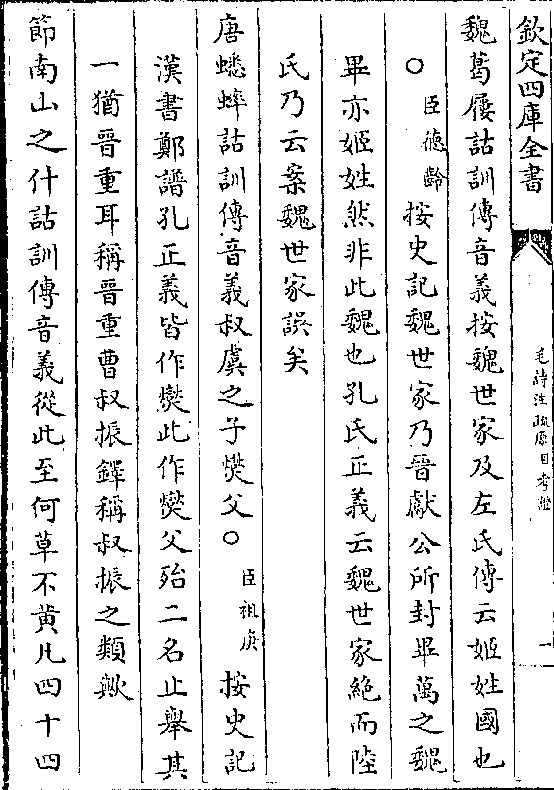 欽定四庫全書
毛詩注疏原目考證
一
魏葛屨詁訓傳音義按魏世家及左氏傳云姬姓國也
○臣德齡按史記魏世家乃晉獻公所封畢萬之魏
畢亦姬姓然非此魏也孔氏正義云魏世家絶而陸
氏乃云案魏世家誤矣
唐蟋蟀詁訓傳音義叔虞之子燮父○臣祖庚按史記
漢書鄭譜孔正義皆作燮此作燮父殆二名止舉其
一猶晉重耳稱晉重曹叔振鐸稱叔振之類歟
節南山之什詁訓傳音義從此至何草不黄凡四十四